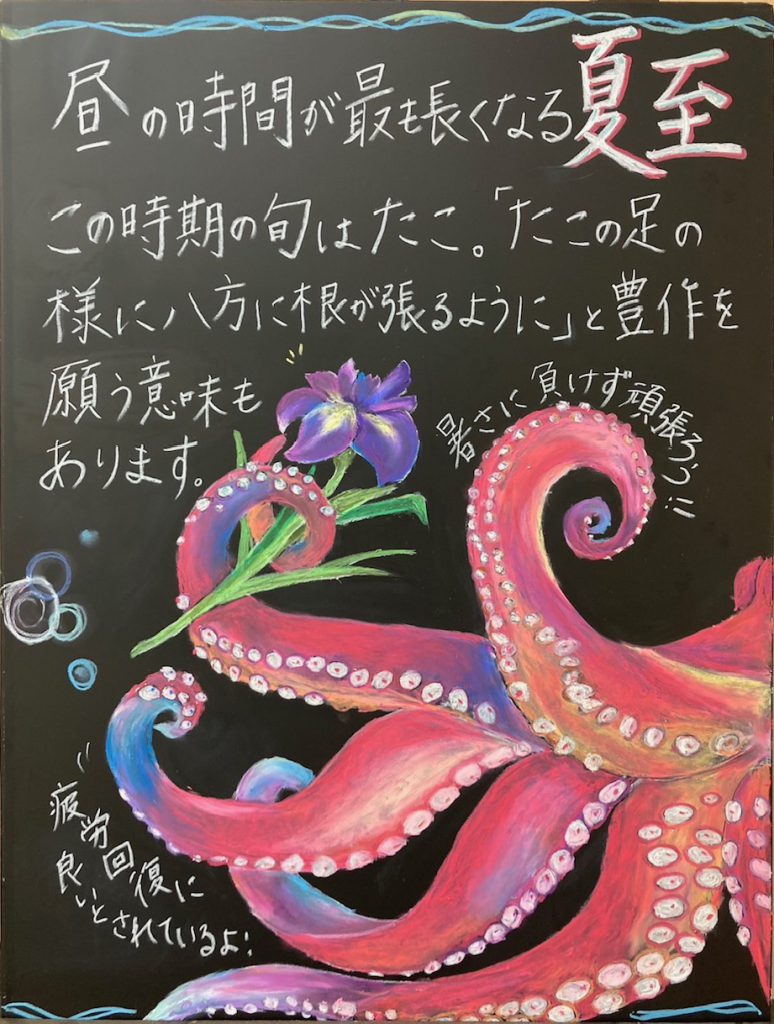 昼の時間が最も長くなる夏至
この時期の旬はたこ。「たこの足の
様に八方に根が張るように」と豊作を
願う意味も
あります。
暑さに負けず頑張ろう!!
疲労回復に
良いとされているよ!